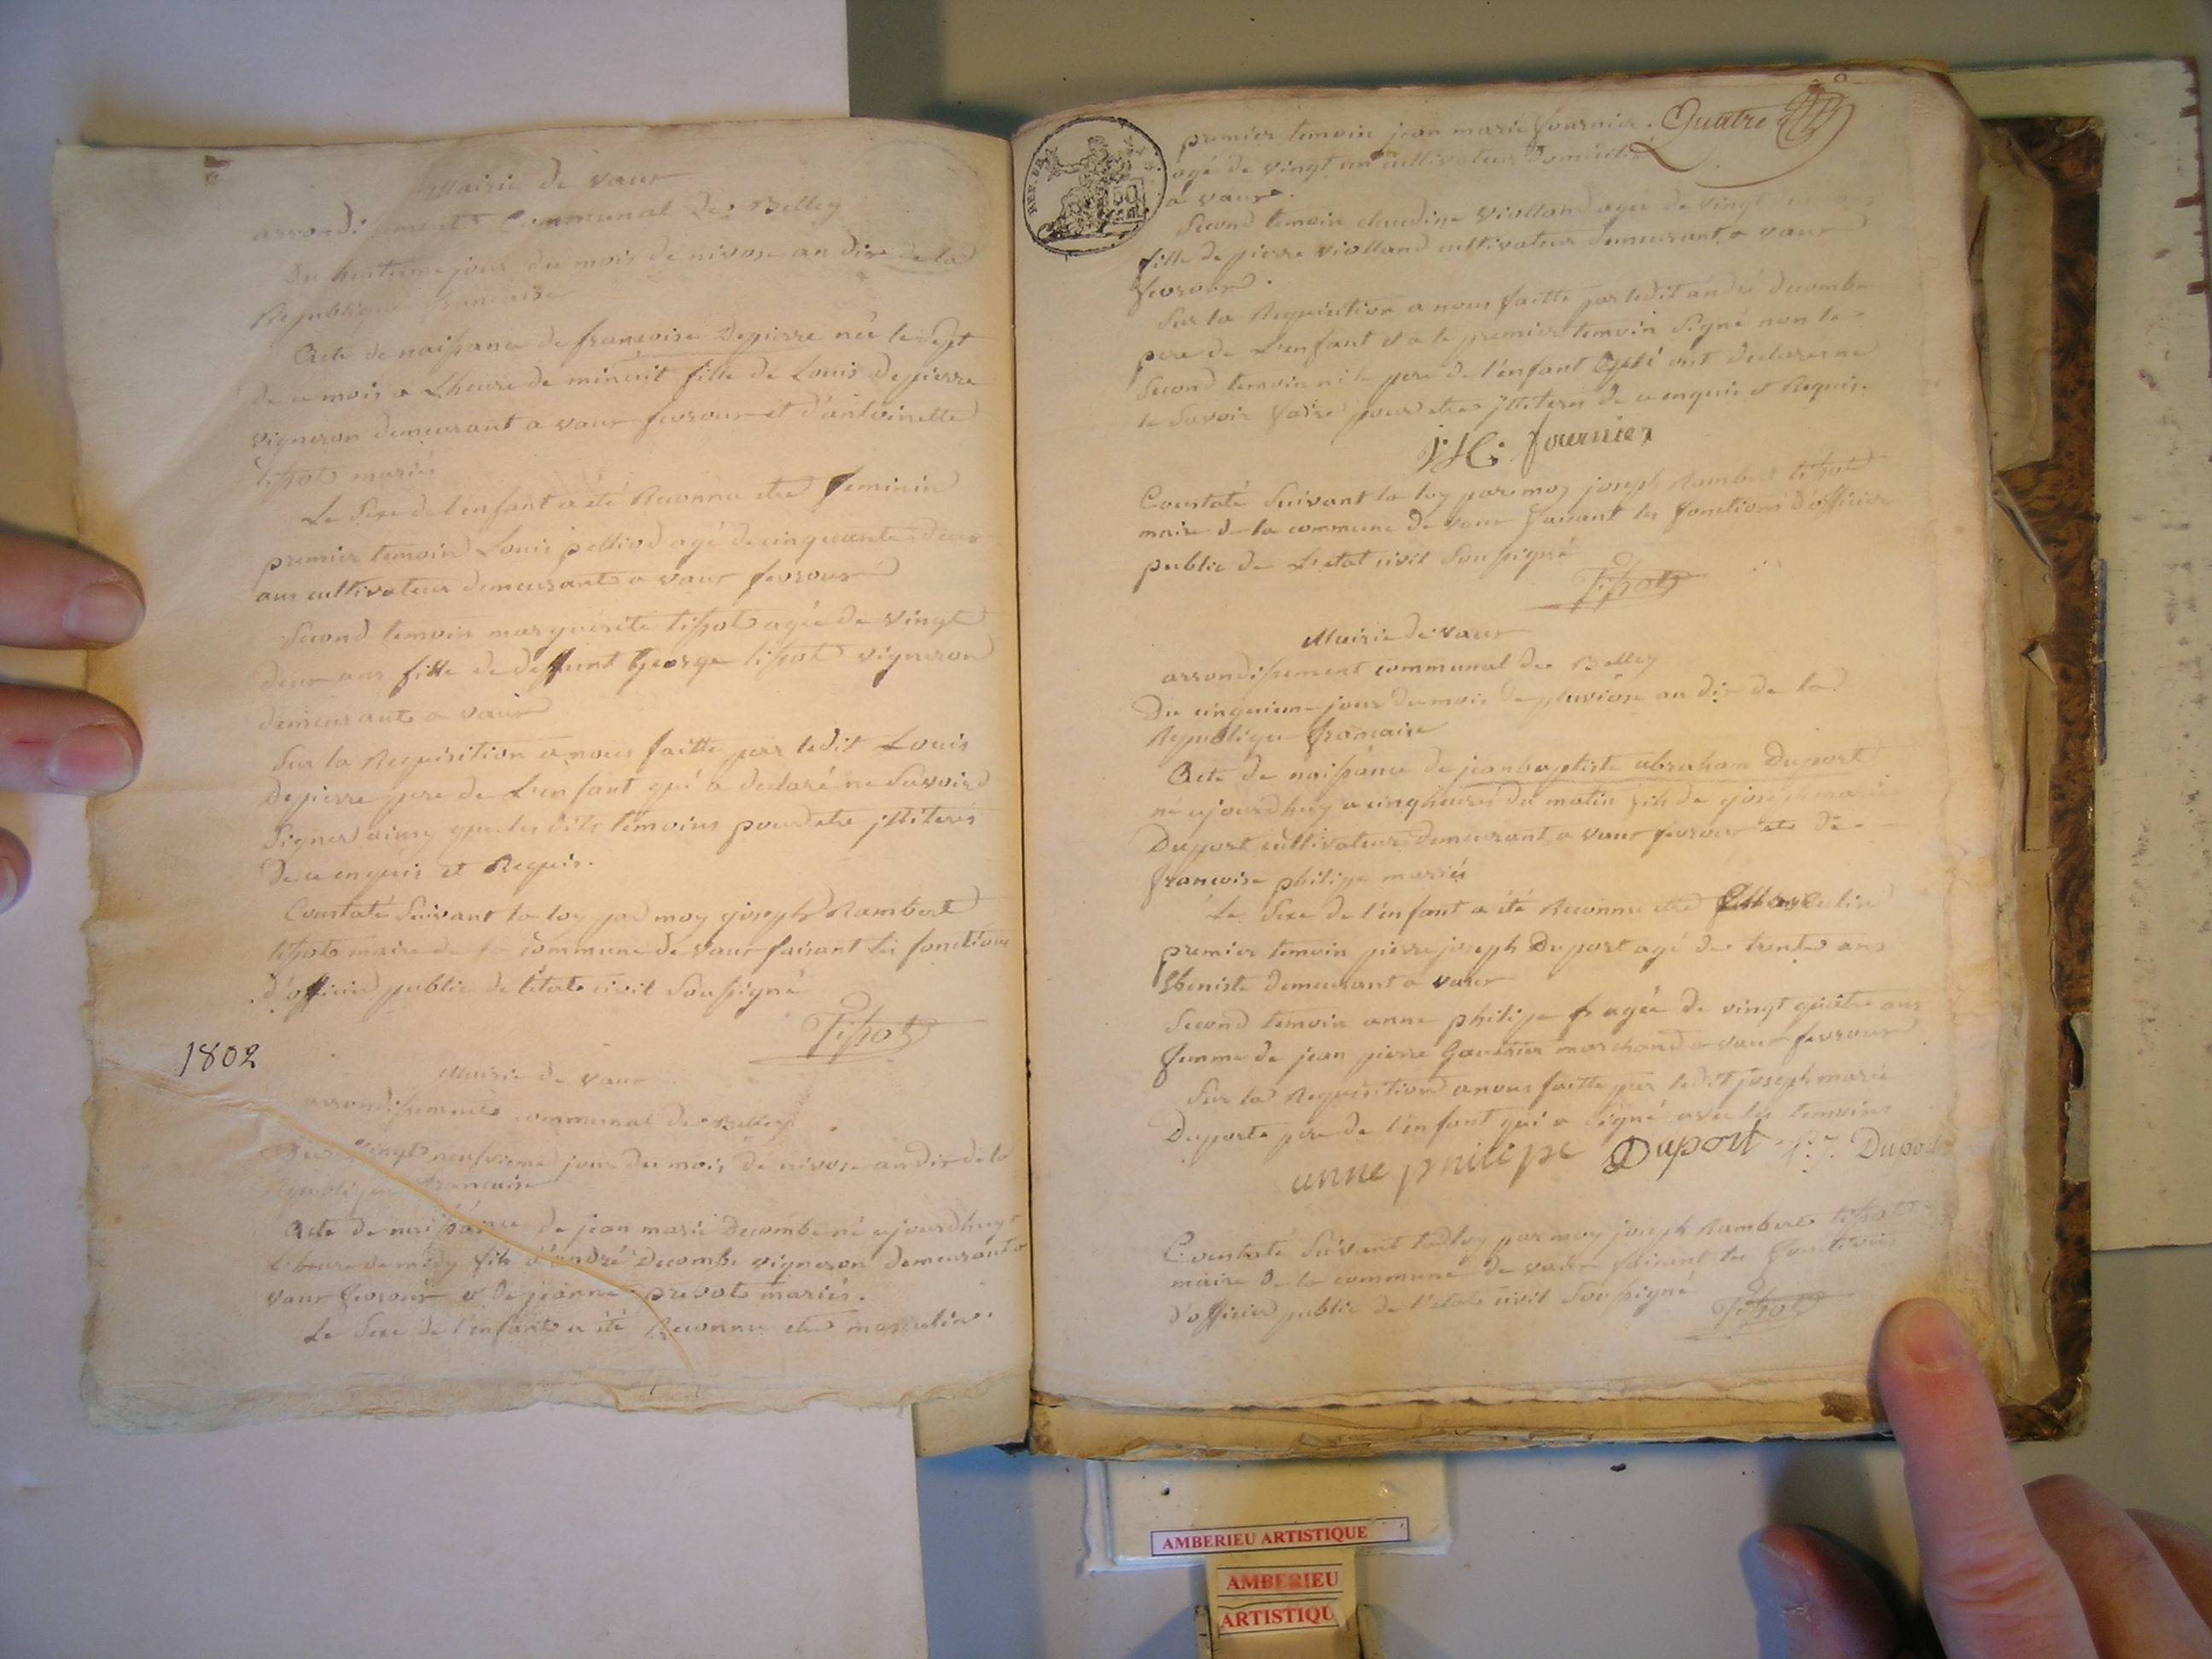 Mairie de vaux
arrondissement Communal de Belley
Du huitieme jour du mois de nivose an dix de la
Republique francaise
Acte de naissance de francoise Depierre née le sept
de ce mois a Lheure de minuit fille de Louis Depierre
vigneron demeurant a vaux fevroux et d'antoinette
tissot mariés
Le Sexe de l'enfant a été Reconnu etre feminin
premier temoin Louis pelliod agé de cinquante deux
ans cultivateur demeurant a vaux fevroux
Second temoin marguerite tissot agée de vingt
deux ans fille de deffunt George tissot vigneron
demeurant a vaux
Sur la Requisition a nous faitte par ledit Louis
Depierre pere de L'enfant qui a declaré ne Savoir
Signer ainsy que les dits temoins pour etre jlliterés
De ce enquis et Requis.
Constaté Suivant la loy par moy joseph Rambert
tissot maire de la commune de vaux faisant les fonctions
d'officier public de l'état civil Soussigné
Tissot
1802
Mairie de vaux
arrondissement communal de Belley
Du vingt neufvieme jour du mois de nivose an dix de la
Republique francaise
Acte de naissance de jean marie Decombe né ajourdhuy
L'heure de midy fils d'andré Decombe vigneron demeurant a
vaux fevroux et de jeanne prevot mariés.
Le Sexe de l'enfant a été Reconnu etre masculin.
Quatre
premier temoin jean marie fournier
agé de vingt un cultivateur domicilié
a vaux.
Second temoin claudine violland agée de vingt
fille de pierre violland cultivateur demeurant a vaux
fevroux.
Sur la Requisition a nous faitte par ledit andré Decombe
pere de L'enfant et a le premier temoin Signé non le
Second temoin ni le pere de l'enfant qui ont declarés ne
le Savoir faire pour etre jlliterés de ce enquis et Requis.
J M fournier
Constaté Suivant la loy par moy joseph Rambert tissot
maire de la commune de vaux faisant les fonctions d'officier
public de L'etat civil Soussigné
Tissot
Mairie de vaux
arrondissement communal de Belley
Du cinquieme jour du mois de pluviose an dix de la
Republique francaise
Acte de naissance de jean baptiste abraham Duport
né ajourdhuy a cinq heures du matin fils de joseph marie
Duport cultivateur demeurant a vaux fevroux et de
francoise philipe mariés
Le Sexe de l'enfant a été Reconnu etre masculin
premier temoin pierre joseph Duport agé de trente ans
Ebeniste demeurant a vaux
Second temoin anne philipe agée de vingt quatre ans
femme de jean pierre Gauthier marchand a vaux fevroux
Sur la Requisition a nous faitte par ledit joseph marie
Duport pere de l'enfant qui a Signé avec les temoins
anne philipe Duport P. J. Duport
Constaté Suivant la loy par moy joseph Rambert tissot
maire de la commune de vaux faisant les fonctions
d'officier public de l'état civil Soussigné
Tissot
AMBERIEU ARTISTIQUE
AMBERIEU
ARTISTIQU